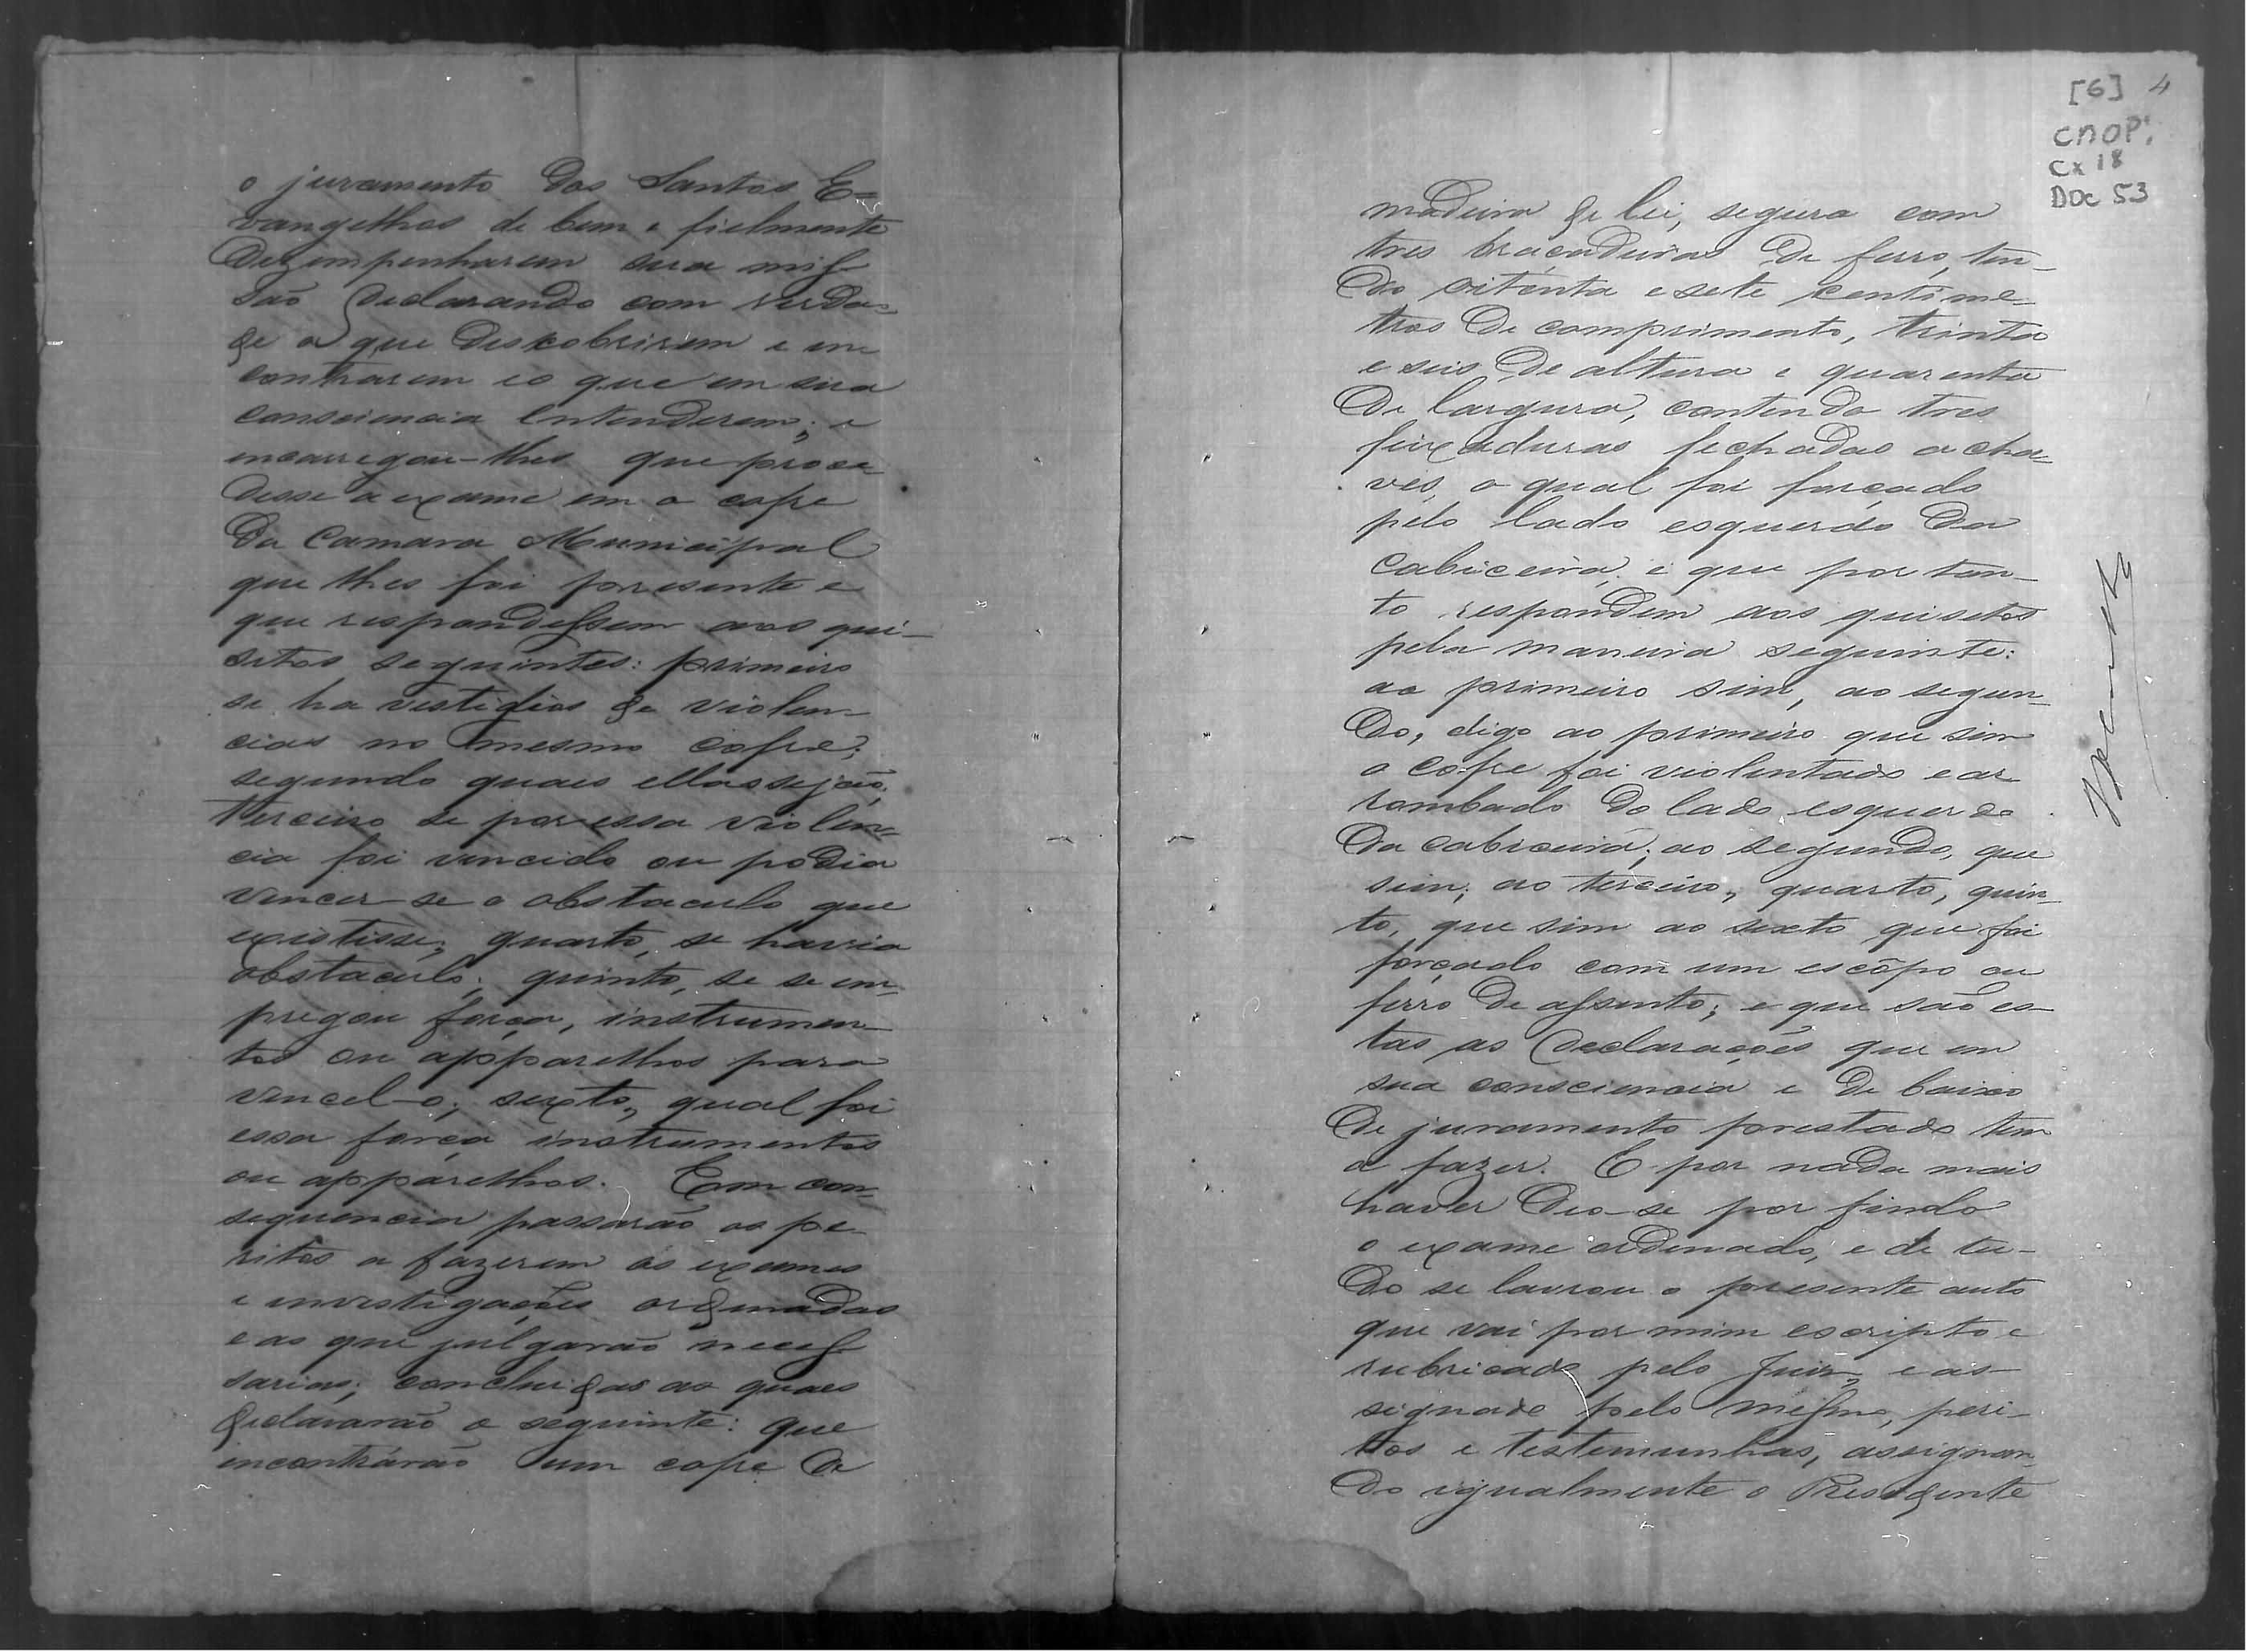 o juramento dos Santos E-
vangelhos de bem e fielmente
dezempenharem sua mis-
são declarando com verda-
de o que descobrirem e en
contrarem eo que em sua
consciencia entenderem; e
encarregou-lhes que proce
desse a exame em o cofre
da Camara Municipal
que lhes foi presente e
que respondessem aos qui-
sitos seguintes: primeiro
se ha vestigios de violen-
cias no mesmo cofre;
segundo quaes ellas sejão;
terceiro se por essa violen-
cia foi vencido ou podia
vencer-se o obstaculo que
existisse; quarto, se havia
obstaculo; quinto, se se em-
pregou força, instrumen-
tos ou apparelhos para
vencel-o; sexto, qual foi
essa força instrumentos
ou apparelhos. Em con-
sequencia passarão os pe-
ritos a fazerem os exames
e investigações ordenadas
e as que julgarão neces
sarias; concluidas as quaes
declararão o seguinte: que
incontrárão um cofre de
[6] 4
CMOP.
Cx 18
DOC 53
madeira de lei, segura com
tres braçadeiras de ferro, ten-
do oitenta e sete centime-
tros de comprimento, trinta
e seis de altura e quarenta
de largura, contendo tres
feixaduras fechadas a cha-
ves, o qual foi forçado
pelo lado esquerdo da
cabiceira; e que por tan-
to respondem aos quisitos
pela maneira seguinte:
ao primeiro sim, ao segun-
do, digo ao primeiro que sim
o cofre foi violentado e ar
rombado do lado esquerdo
da cabiceira; ao segundo, que
sim; ao terceiro, quarto, quin-
to, que sim ao sexto que foi
forçado com um escôpo ou
ferro de assento; e que são es-
tas as declarações que em
sua consciencia e de baixo
de juramento prestado tem
a fazer. E por nada mais
haver deo-se por findo
o exame ordenado, e de tu-
do se lavrou o presente auto
que vai por mim escripto e
rubricado pelo Juiz, e as-
signado pelo mesmo, peri-
tos e testemunhas, assignan-
do igualmente o Presidente